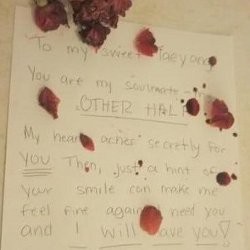 To my sweet Taeyang
You are my soulmate - my
OTHER HALF
My heart aches secretly for
YOU. Then, just a hint of
your smile can make me
feel fine again. I need you
and I will have you!